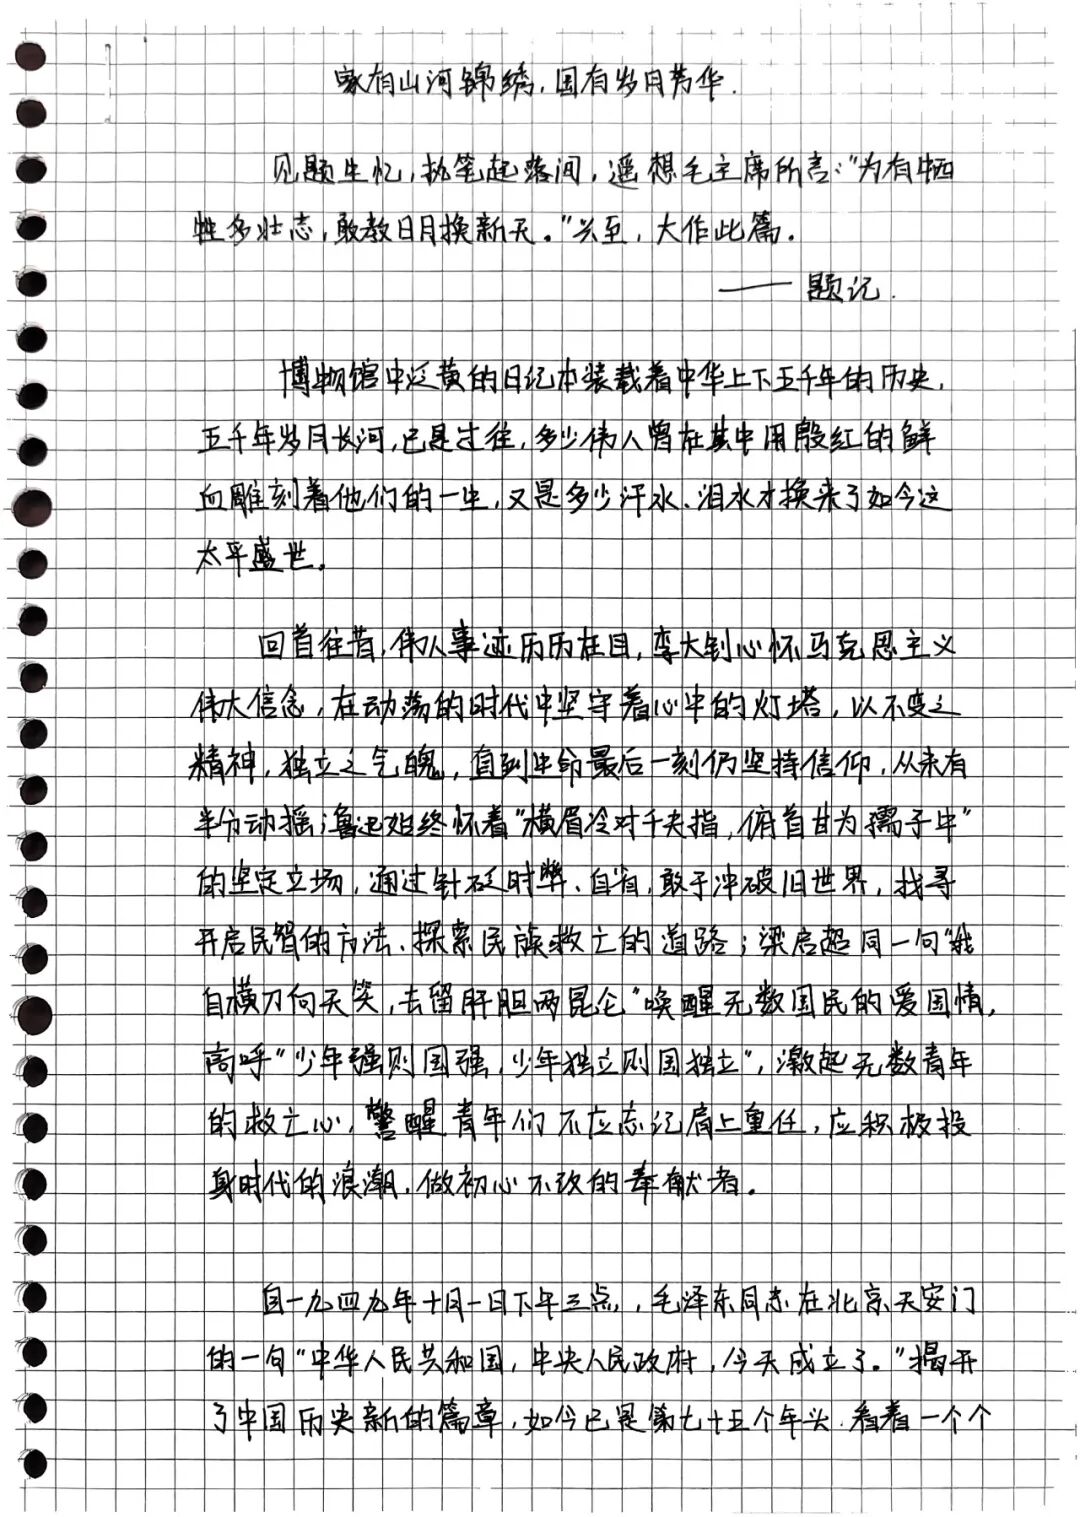 家有山河锦绣,国有岁月芳华.
见题生忆,执笔起落间,遥想毛主席所言:“为有牺
牲多壮志,敢教日月换新天。”兴至,大作此篇.
——题记.
博物馆中泛黄的日记本装载着中华上下五千年的历史,
五千年岁月长河,已是过往,多少伟人曾在其中用殷红的鲜
血雕刻着他们的一生,又是多少汗水、泪水才换来了如今这
太平盛世。
回首往昔,伟人事迹历历在目,李大钊心怀马克思主义
伟大信念,在动荡的时代中坚守着心中的灯塔,以不变之
精神,独立之气魄,直到生命最后一刻仍坚持信仰,从未有
半分动摇;鲁迅始终怀着“横眉冷对千夫指,俯首甘为孺子牛”
的坚定立场,通过针砭时弊、自省,敢于冲破旧世界,找寻
开启民智的方法、探索民族救亡的道路;梁启超同一句“我
自横刀向天笑,去留肝胆两昆仑”唤醒无数国民的爱国情,
高呼“少年强则国强,少年独立则国独立”,激起无数青年
的救亡心,警醒青年们不应忘记肩上重任,应积极投
身时代的浪潮,做初心不改的奉献者。
自一九四九年十月一日下午三点,,毛泽东同志在北京天安门
的一句“中华人民共和国,中央人民政府,今天成立了。”揭开
了中国历史新的篇章,如今已是第七十五个年头.看着一个个